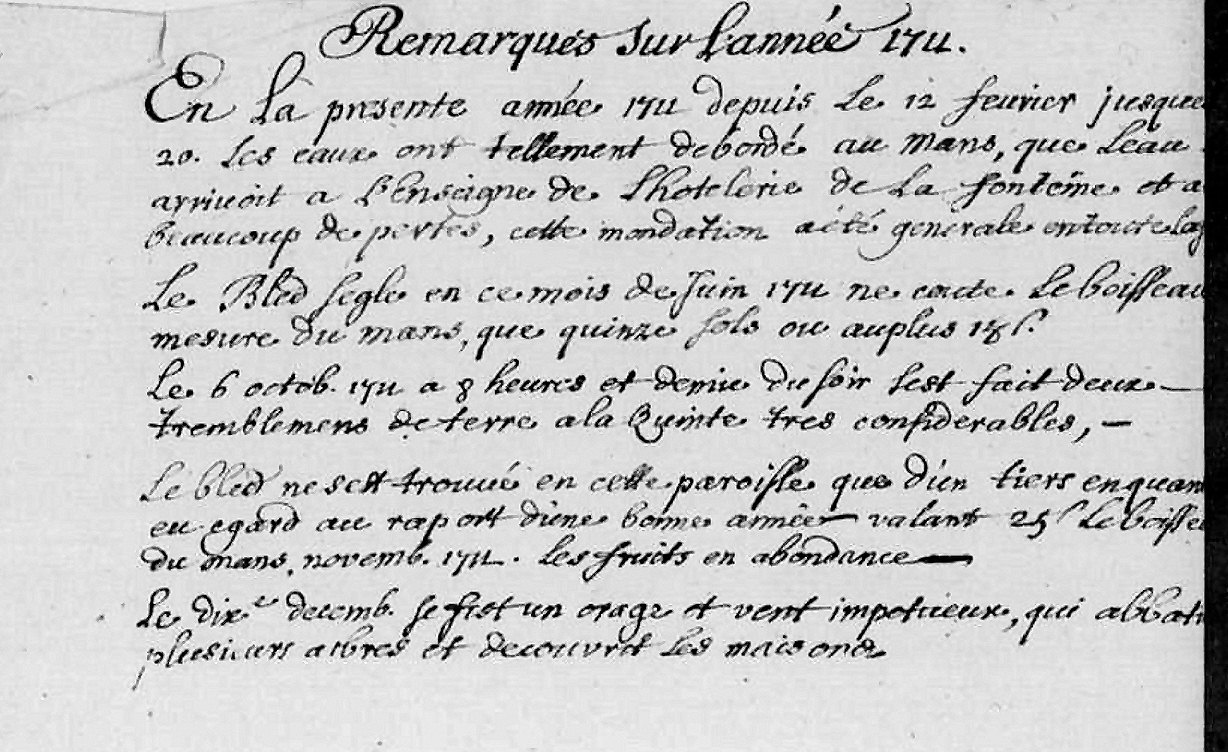 Remarques sur l'année 1711.
En la presente année 1711 depuis le 12 feurier jusque
20. les eaux ont tellement debordé au mans, que l'eau
arriuoit a l'Enseigne de l'hotelerie de la fonteine et a
beaucoup de pertes, cette inondation a été generale en toute la
Le Bled segle en ce mois de Juin 1711 ne coute le boisseau
mesure du mans, que quinze sols ou au plus 18 s.
Le 6 octob. 1711 a 8 heures et demie du soir sest fait deux
tremblemens de terre a la Quinte tres considerables,
Le bled ne sest trouué en cette paroisse que d'un tiers en quan
eu egard au raport d'une bonne année valant 25 s le boisse
du mans, novemb. 1711. les fruits en abondance
Le dix.e decemb. se fist un orage et vent impetueux, qui abbati
plusieurs arbres et decouvrit les maisons